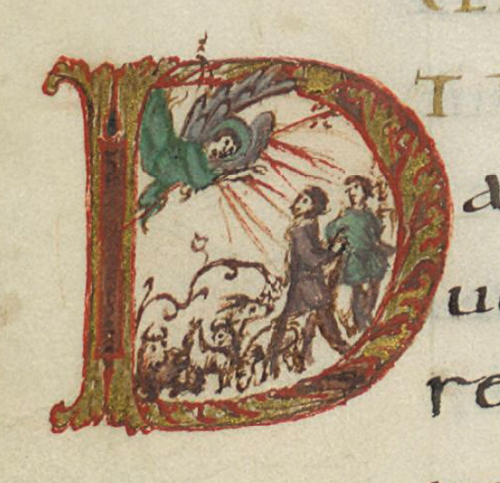 D
T
a
u
re